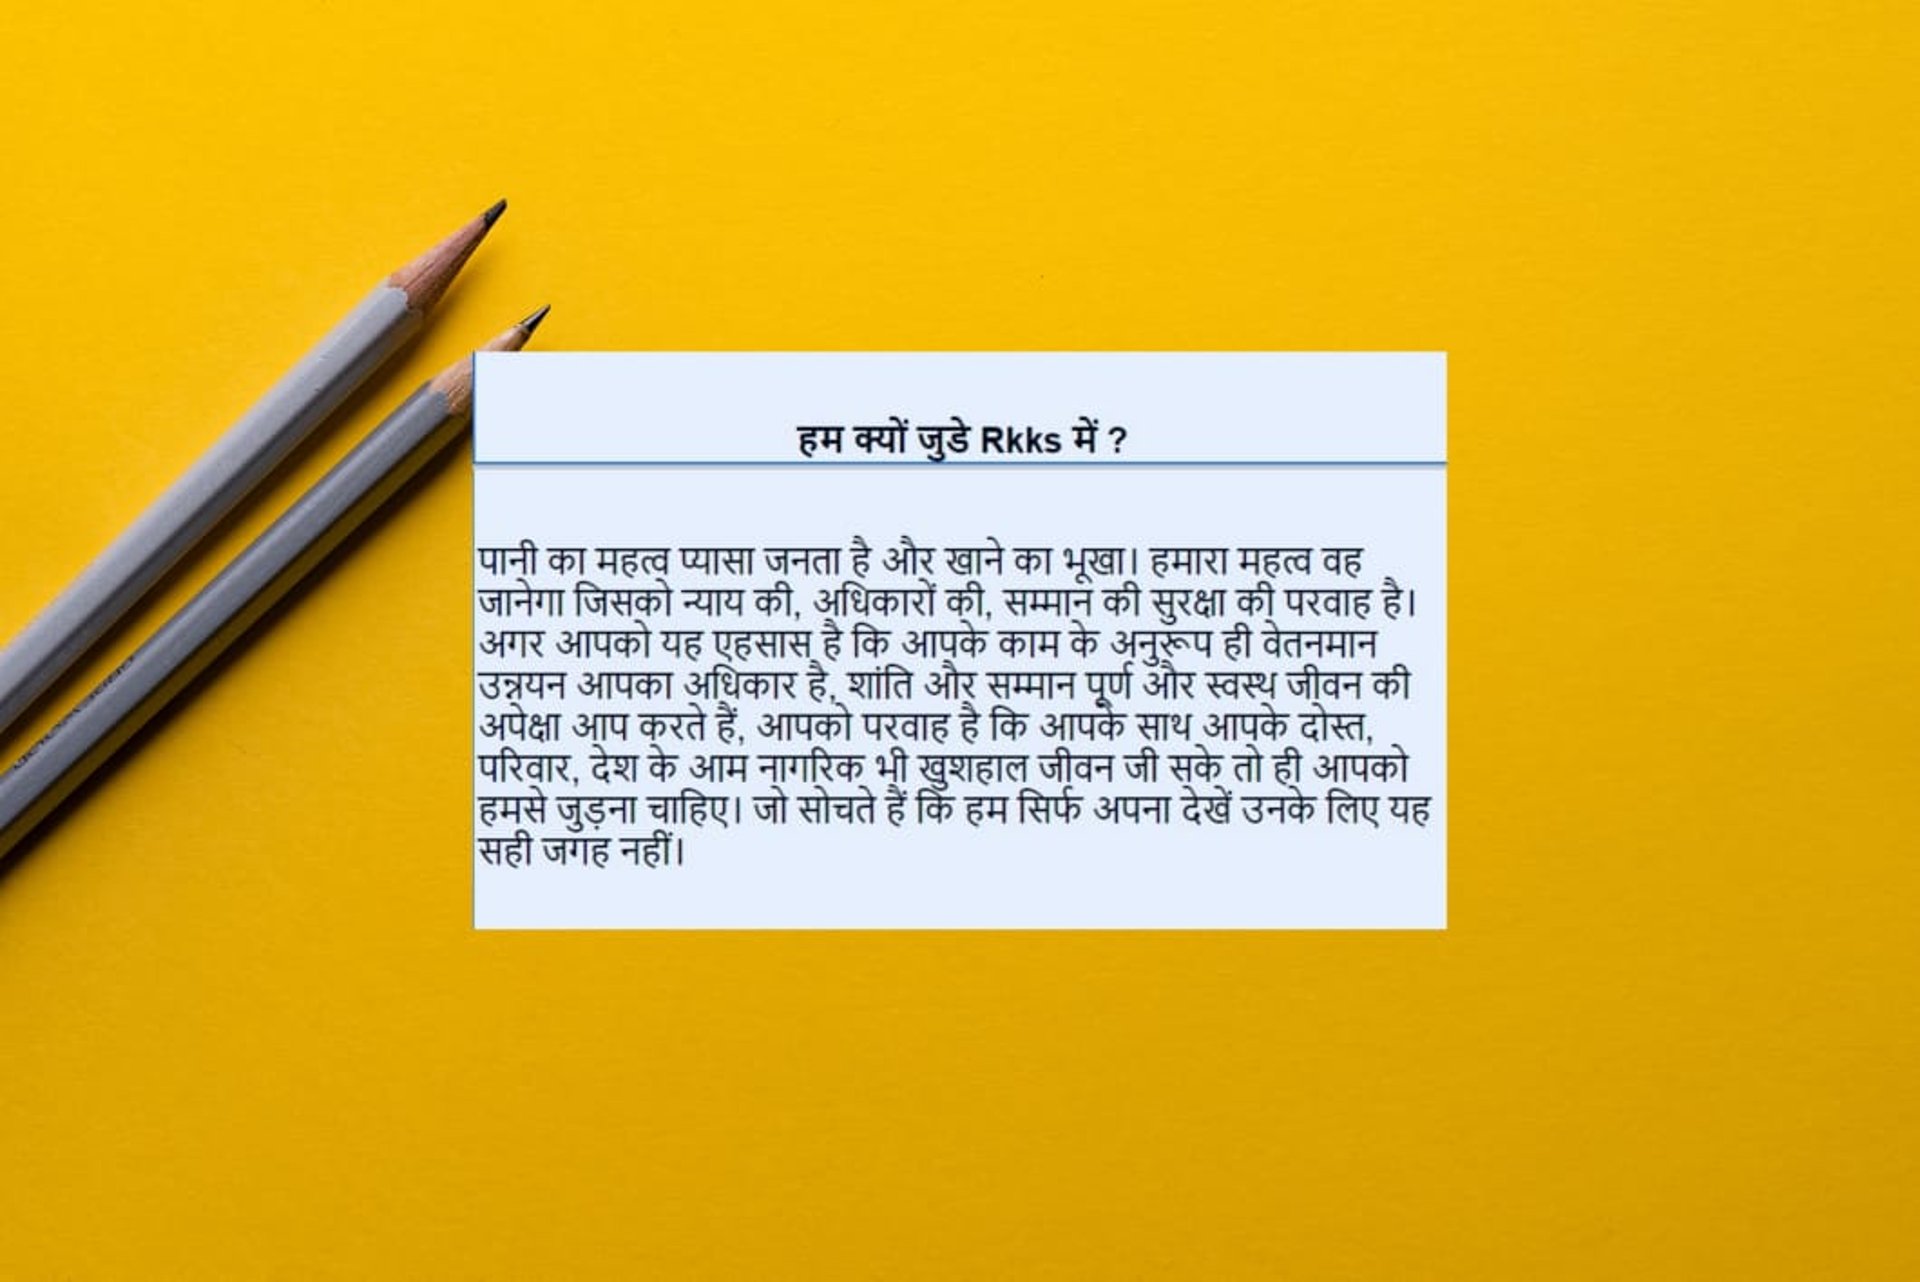 हम क्यों जुडे Rkks में ?
पानी का महत्व प्यासा जनता है और खाने का भूखा। हमारा महत्व वह
जानेगा जिसको न्याय की, अधिकारों की, सम्मान की सुरक्षा की परवाह है।
अगर आपको यह एहसास है कि आपके काम के अनुरूप ही वेतनमान
उन्नयन आपका अधिकार है, शांति और सम्मान पूर्ण और स्वस्थ जीवन की
अपेक्षा आप करते हैं, आपको परवाह है कि आपके साथ आपके दोस्त,
परिवार, देश के आम नागरिक भी खुशहाल जीवन जी सके तो ही आपको
हमसे जुड़ना चाहिए। जो सोचते हैं कि हम सिर्फ अपना देखें उनके लिए यह
सही जगह नहीं।